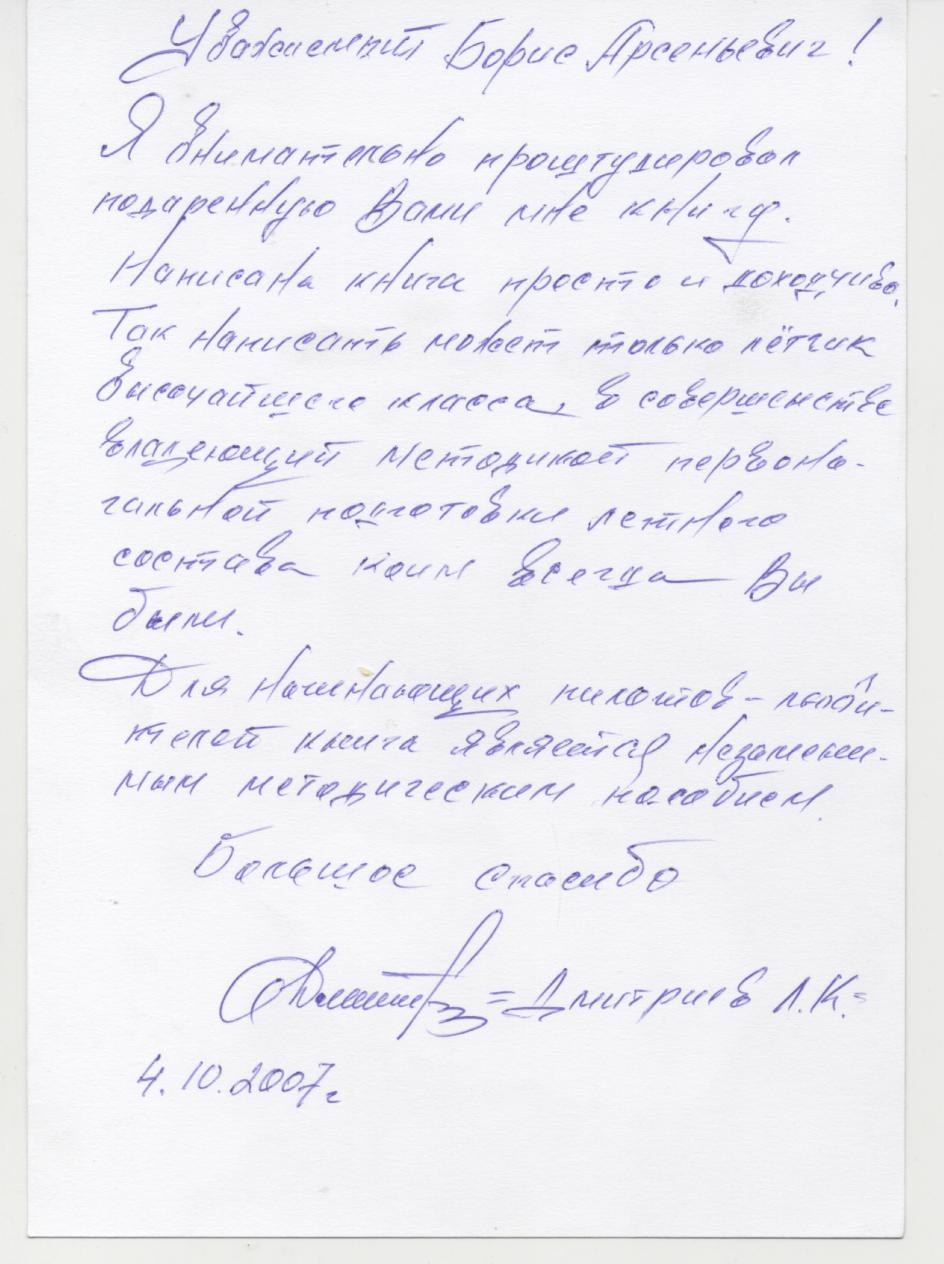 Уважаемый Борис Арсеньевич!
Я внимательно проштудировал
подаренную Вами мне книгу.
Написана книга просто и доходчиво.
Так написать может только лётчик
высочайшего класса, в совершенстве
владеющий методикой первона-
чальной подготовки летного
состава коим всегда Вы
были.
Для начинающих пилотов-люби-
телей книга является незамени-
мым методическим пособием.
Большое спасибо
=Дмитриев Л.К.=
4.10.2007г